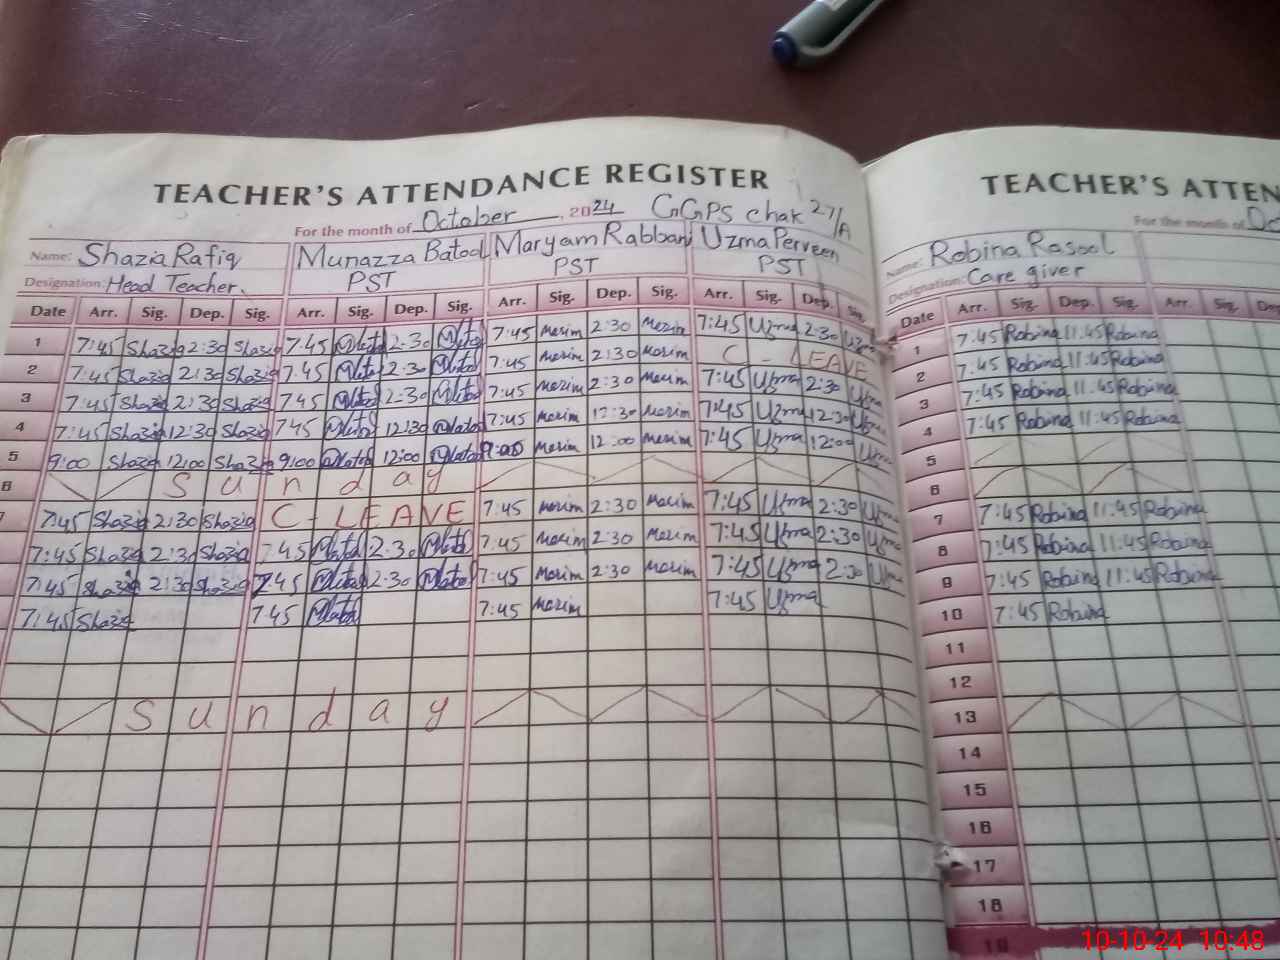 TEACHER'S ATTENDANCE REGISTER
For the month of October, 2024 GGPS chak 27/A
Name: Shazia Rafiq Munazza Batool Maryam Rabbani Uzma Perveen
Designation: Head Teacher. PST PST PST
Date Arr. Sig. Dep. Sig. Arr. Sig. Dep. Sig. Arr. Sig. Dep. Sig. Arr. Sig. Dep. Sig.
1 7:45 Shazia 2:30 Shazia 7.45 2.30 7:45 Merim 2:30 Merim 7:45 Uzma 2:30 Uzma
2 7:45 Shazia 2:30 Shazia 7.45 2.30 7:45 Merim 2:30 Merim C - LEAVE
3 7:45 Shazia 2:30 Shazia 745 2:30 7:45 Merim 2:30 Merim 7:45 Uzma 2:30 Uzma
4 7:45 Shazia 12:30 Shazia 745 12:30 7:45 Merim 12:30 Merim 7:45 Uzma 12:30 Uzma
5 9:00 Shazia 12:00 Shazia 9:00 12:00 9:00 Merim 12:00 Merim 7:45 Uzma 12:00 Uzma
6 Sunday
7 7:45 Shazia 2:30 Shazia C - LEAVE 7:45 Merim 2:30 Merim 7:45 Uzma 2:30 Uzma
7:45 Shazia 2:30 Shazia 7.45 2.30 7:45 Merim 2:30 Merim 7:45 Uzma 2:30 Uzma
7:45 Shazia 2:30 Shazia 7.45 2.30 7:45 Merim 2:30 Merim 7:45 Uzma 2:30 Uzma
7:45 Shazia 7.45 7:45 Merim 7:45 Uzma
Sunday
TEACHER'S ATTEN
For the month of Oc
Name: Robina Rasool
Designation: Care giver
Date Arr. Sig. Dep. Sig. Arr. Sig. Dep.
1 7:45 Robina 11:45 Robina
2 7:45 Robina 11:45 Robina
3 7:45 Robina 11:45 Robina
4 7:45 Robina 11:45 Robina
5
6
7 7:45 Robina 11:45 Robina
8 7:45 Robina 11:45 Robina
9 7:45 Robina 11:45 Robina
10 7:45 Robina
11
12
13
14
15
16
17
18
19
10-10-24 10:48